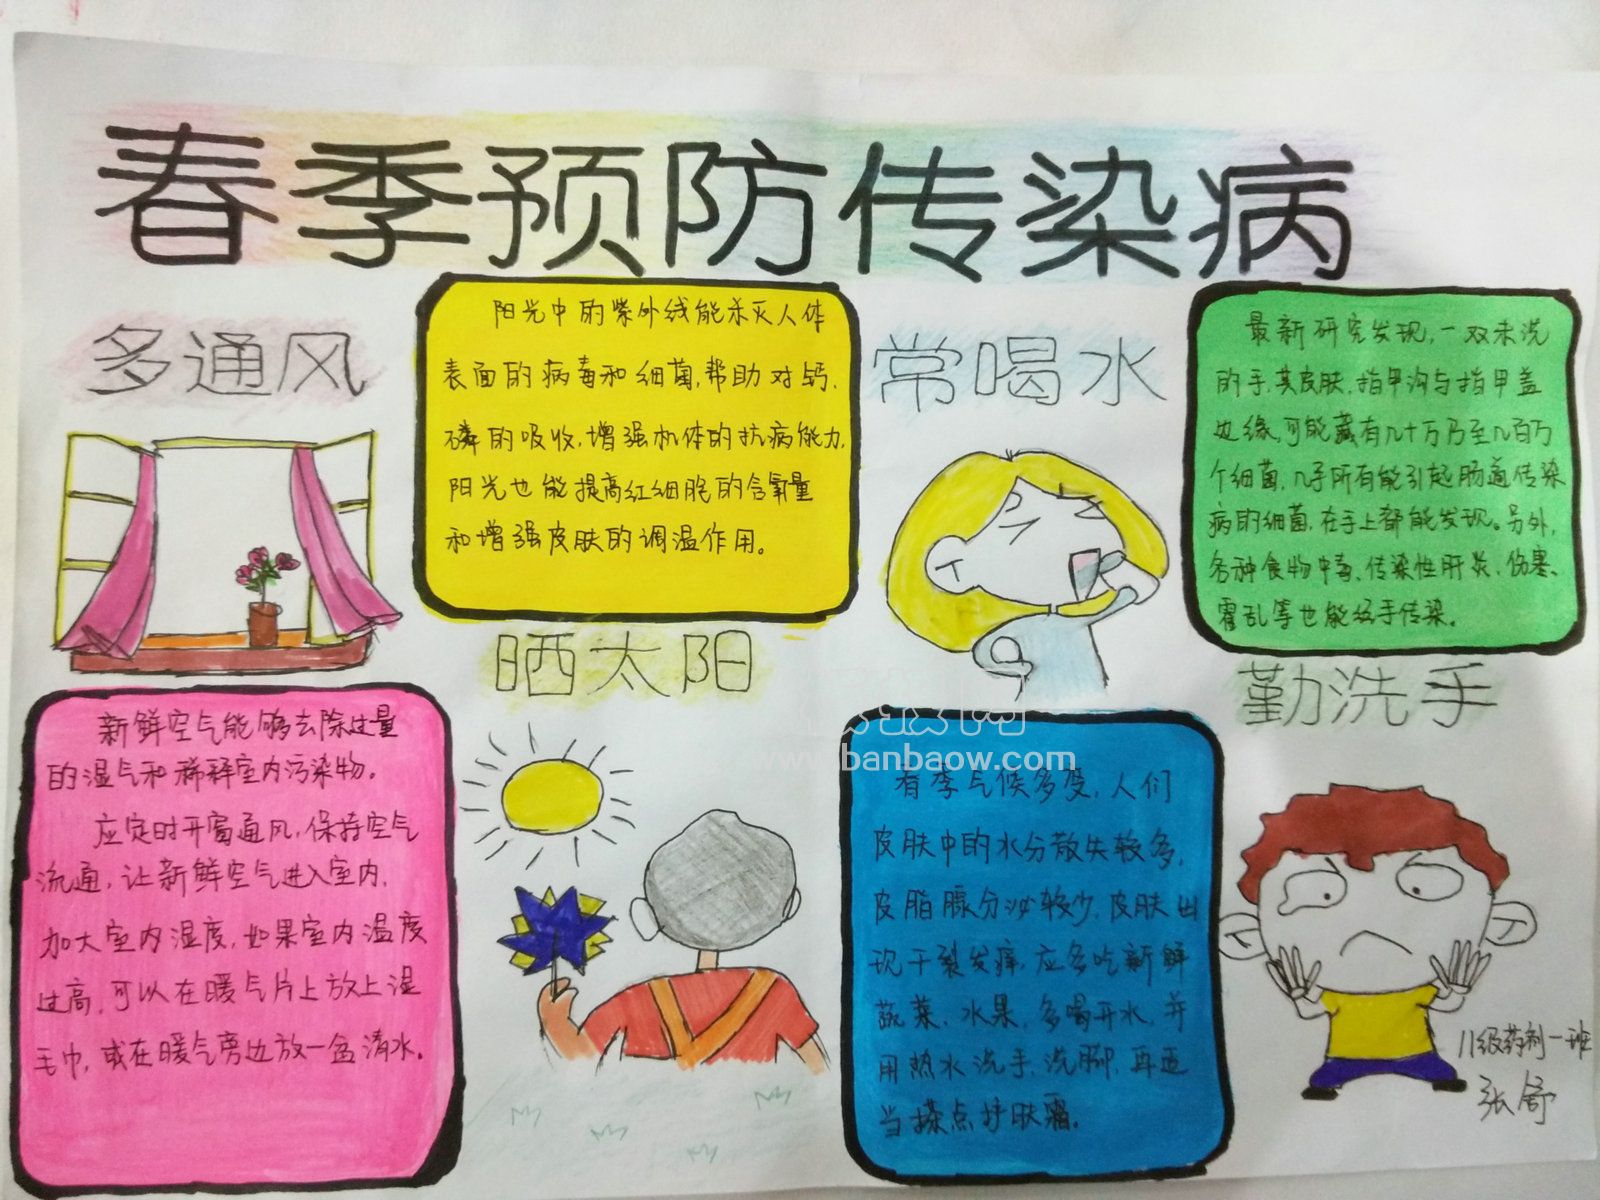 春季预防传染病
多通风
新鲜空气能够去除过量
的湿气和稀释室内污染物。
应定时开窗通风,保持空气
流通,让新鲜空气进入室内,
加大室内湿度,如果室内温度
过高,可以在暖气片上放上湿
毛巾,或在暖气旁边放一盆清水。
阳光中的紫外线能杀灭人体
表面的病毒和细菌,帮助对钙、
磷的吸收,增强机体的抗病能力,
阳光也能提高红细胞的含氧量
和增强皮肤的调温作用。
晒太阳
常喝水
春季气候多变,人们
皮肤中的水分散失较多,
皮脂腺分泌较少,皮肤出
现干裂发痒,应多吃新鲜
蔬菜、水果,多喝开水,并
用热水洗手、洗脚,再适
当搽点护肤霜。
最新研究发现,一双未洗
的手,其皮肤、指甲沟与指甲盖
边缘,可能藏有几十万乃至几百万
个细菌,几乎所有能引起肠道传染
病的细菌,在手上都能发现。另外,
各种食物中毒、传染性肝炎、伤寒、
霍乱等也能经手传染。
勤洗手
11级药剂一班
张舒
www.banbaow.com